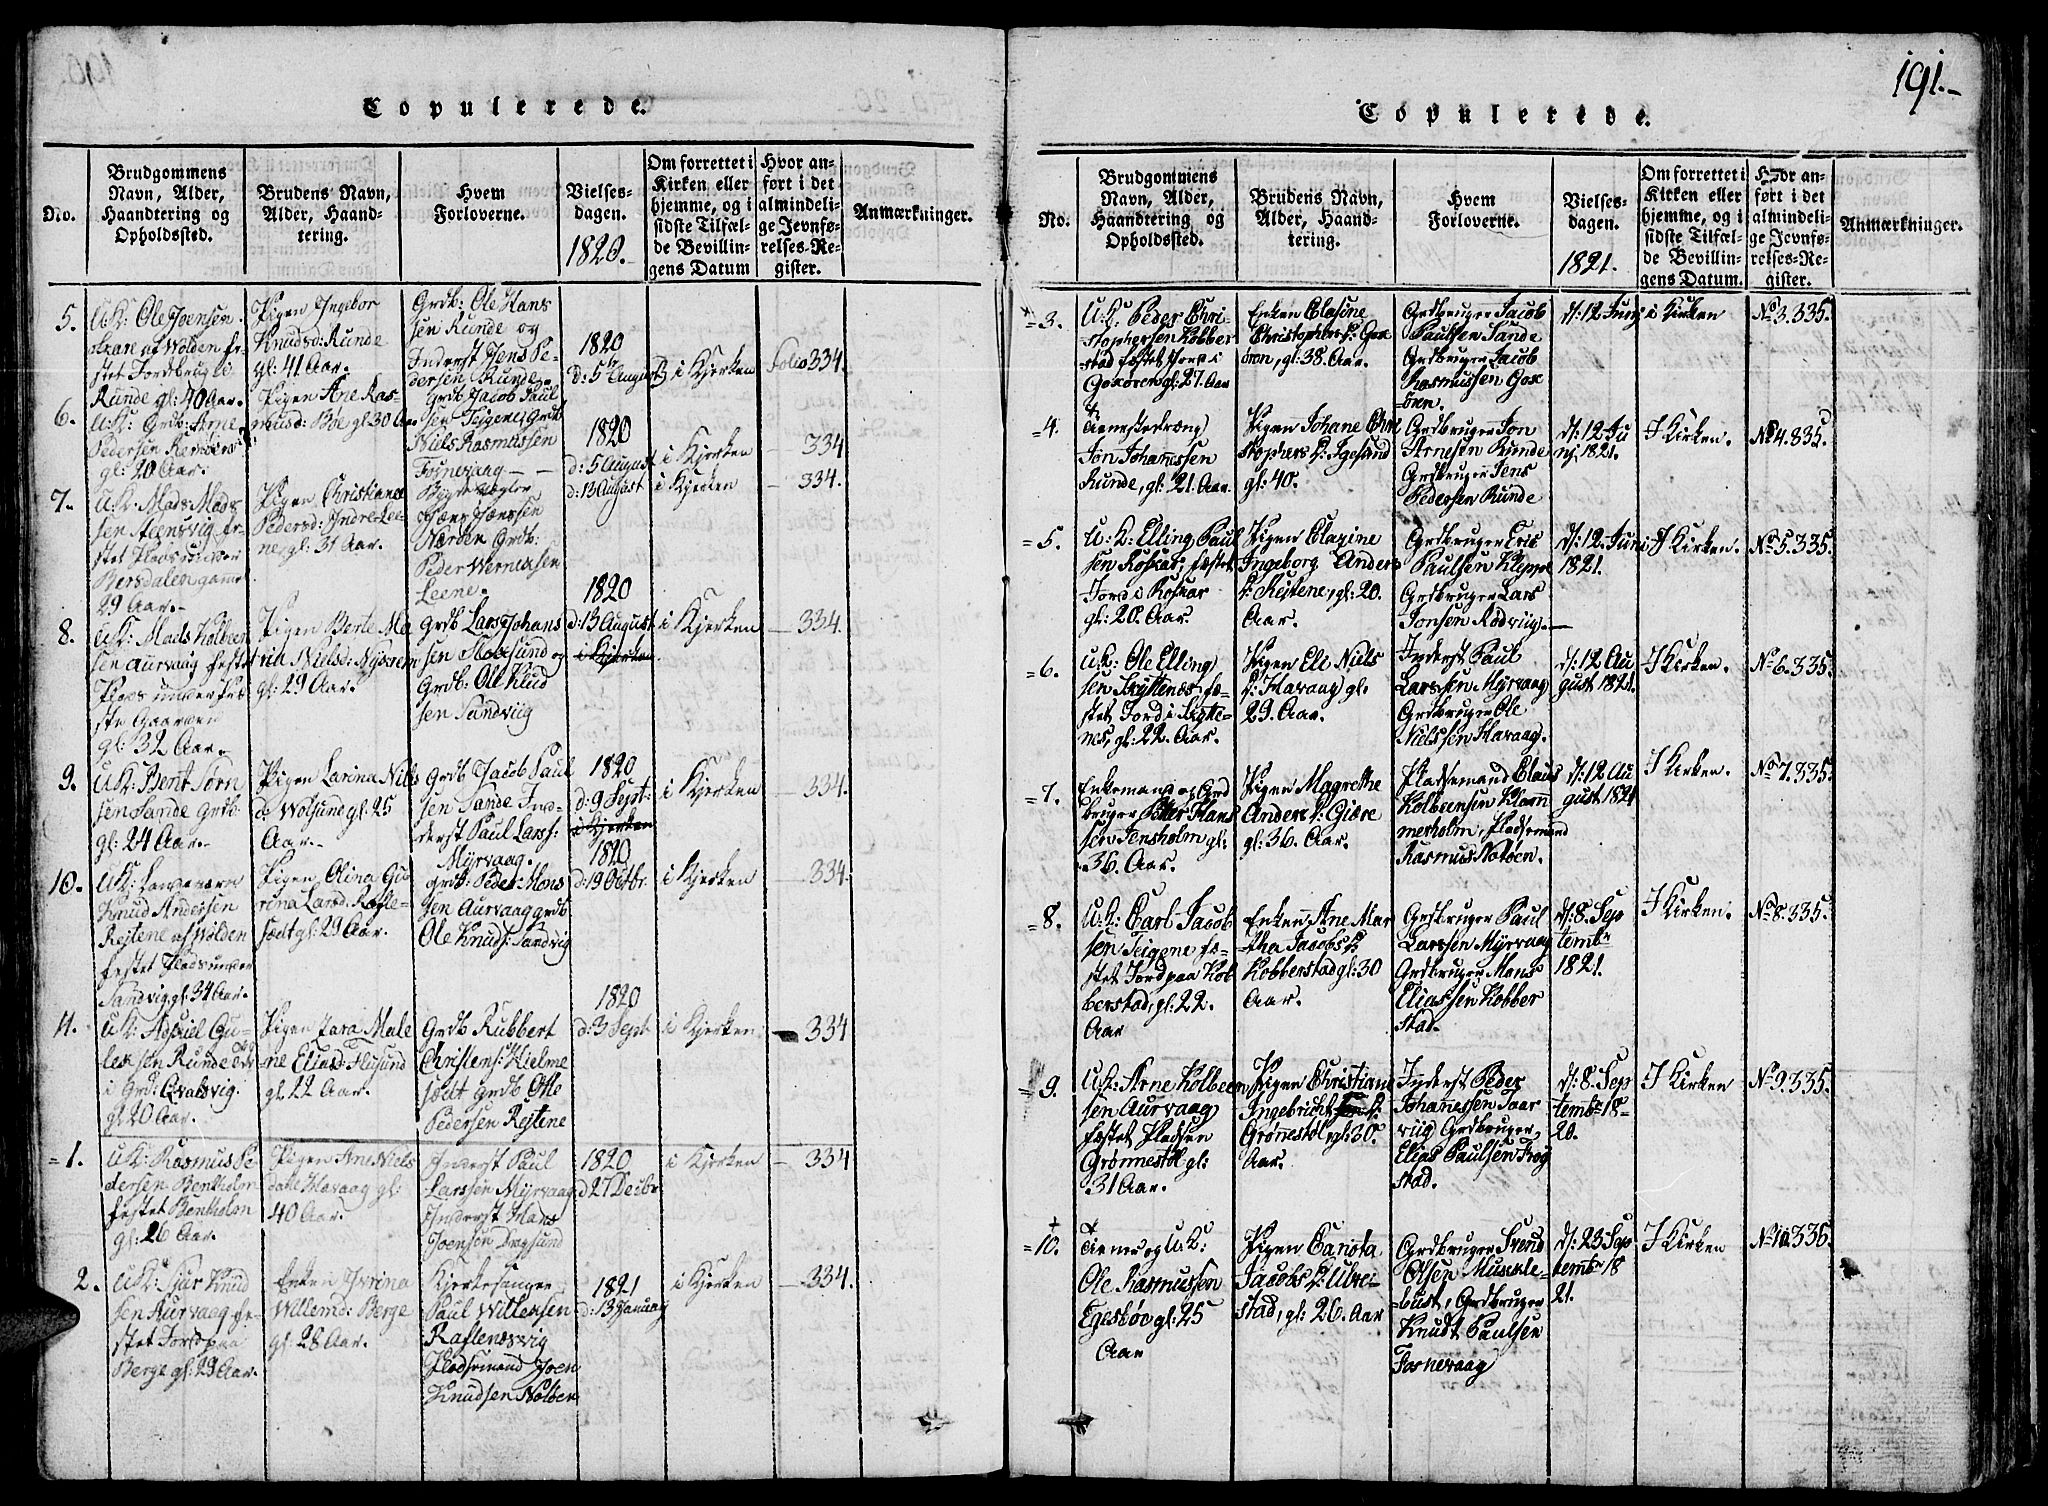 191.
Copulerede.
No.
Brudgommens
Navn, Alder,
Haandtering og
Opholdssted.
Brudens Navn,
Alder, Haand-
tering.
Hvem
Forloverne.
Vielses-
dagen.
1820.
Om forrettet i
Kirken eller
hjemme, og i
sidste Tilfæl-
de Bevillin-
gens Datum
Hvor an-
ført i det
almindeli-
ge Jevnfø-
relses-Re-
gister.
Anmærkninger.
5.
U.K: Ole Joensen
af Wolden fe-
stet Jordbrug i
Runde gl: 40 Aar.
Pigen Ingebor
Knudsd: Runde
gl: 41 Aar.
Grdb: Ole Hans
sen Runde og
Inderst Jens Pe-
dersen Runde
1820
D: 5te August
i Kjerken
Folio 334.
6.
U.K: Grdb: Arne
Pedersen Remøen
gl: 20 Aar.
Pigen Ane Ras-
musd: Bøe gl. 30 Aar
Grdb Jacob Paul
sen Teigene, Grdb
Niels Rasmussen
Fosnevaag
1820
d: 5 August
i Kjerken
334
7.
U.K: Mads Mads
sen Steensvig fe-
stet Plads under
Bersdalen gaml
29 Aar.
Pigen Christiane
Pedersd: Indre Lee-
ne, gl: 31 Aar.
Jens Jenssen
Nærøen Grdb:
Peder Wernessen
Leene.
d: 13 August
i Kjerken
334.
8.
U.K: Mads Kolbeen
sen Aurvaag festet
Plads under Præ-
ste Gaarden
gl: 32 Aar.
Pigen Berte Ma
ria Nielsd: Myhrem
gl: 29 Aar.
Grdb Lars Johans
sen og
Grdb: Ole Knud
sen Sandviig
1820
d: 13 August
i Kjerken
i Kjerken
334.
9.
U.K: Bent Jørn
sen Sande Grdb:
gl: 24 Aar.
Pigen Larina Niels
d: Wolsund gl: 25
Aar.
Grdb Jacob Paul
sen Sande Ind-
derst Paul Larss:
Myrvaag.
1820
d: 9 Sept:
i Kjerken
i Kjerken
334.
10.
U.K: Landeværn
Knud Andersen
Rejtene af Wolden
festet Plads under
Sandvig, gl: 34 Aar.
Pigen Olina Gu-
rina Larsd. Røfte-
sædt gl: 29 Aar.
grdb: Peder Mons
sen Aurvaag grdb
Ole Knuds: Sandvig
1820
d: 19 Octbr.
i Kjerken
334.
11.
U.K: Adskiel Gu-
leksen Runde
i Grd: Qvalsvig.
gl. 20 Aar.
Pigen Zara Male
ne Eliasd: Husund
gl. 22 Aar.
Grdb Rubbert
Christens: Hielme
sætt grdb Otte
Pedersen Rejtene
1820
d: 3 Sept
i Kjerken
334
=1.
U.K: Rasmus Pe-
dersen Bentholm
festet Bentholm
gl: 26 Aar.
Pigen Ane Niels
datt Havaag gl:
40 Aar.
Inderst Paul
Larssen Myrvaag
Inderst Hans
Joensen Dragsund
1820
d 27 Decbr
i Kjerken
334
2.
U.K: Iver Knud
sen Aurvaag fe-
stet Jord paa
Berge gl: 29 Aar.
Enken Ivrina
Willemd: Berge
gl: 28 Aar.
Kjerkesanger
Paul Willensen
Raftenæsvig
Pladsemand Joen
Knudsen Notøen
1821
d: 13 January
i Kjerken
334.
Copulerede.
No.
Brudgommens
Navn, Alder,
Haandtering og
Opholdssted.
Brudens Navn,
Alder, Haand-
tering.
Hvem
Forloverne.
Vielses-
dagen.
1821.
Om forrettet i
Kirken eller
hjemme, og i
sidste Tilfæl-
de Bevillin-
gens Datum.
Hvor an-
ført i det
almindeli-
ge Jevnfø-
relses-Re-
gister.
Anmærkninger.
=3.
U.K. Peder Chri-
stophersen Kobber
stad fæstet Jord i
Goxøren gl: 27. Aar
Enken Elasine
Christophers D: Gox
øren, gl: 38. Aar
Grdbruger Jacob
Paulsen Sande
Grdbruger Jacob
Rasmussen Gox
=øren.
d: 12 Junj
i Kirken
No 3. 335.
=4.
Jon Johannessen
Runde, gl: 21. Aar.
Pigen Johane Chri
stophers D: Igesund
gl: 40.
Grdbruger Jon
Arnesen Runde
Grdbruger Jens
Pedersen Runde
d: 12 Ju
nj. 1821.
I Kirken.
No 4. 335.
=5.
U.K: Elling Paul
sen Koskar, fæstet
Jord i Koskar
gl: 20. Aar.
Pigen Elazine
Ingeborg Anders
D: Rejtene, gl: 20.
Aar.
Grdbruger Eric
Paulsen Kleppe
Grdbruger Lars
Jonsen Rødviig.
d: 12. Juni
1821.
I Kirken.
No 5. 335.
=6.
U.K: Ole Elling
sen Skottenes, fæ-
stet Jord i Skotte-
nes, gl: 22. Aar.
Pigen Ele Niels
D: Havaag gl.
29. Aar.
Inderst Paul
Larssen Myrvaag
Grdbruger Ole
Nielssen Havaag.
d: 12 Au
gust 1821.
I Kirken.
No 6. 335.
=7.
Enkemand og Grd
bruger Peter Hans
sen Jensholm gl:
36. Aar.
Pigen Magrethe
Anders D: Giære
gl: 36. Aar.
Pladsemand Claus
Kolbeensen Flem
merholm, Pladsemand
Rasmus Notøen.
d: 12 Au
gust 1821
I Kirken.
No 7. 335.
=8.
U.K. Carl Jacob
sen Teigene fæ-
stet Jord paa Kob
berstad, gl: 22.
Aar
Enken Ane Mar
tha Jacobs D
Kobberstad gl: 30
Aar.
Grdbruger Paul
Larssen Myrvaag
Grdbruger Mons
Eliassen Kobber
stad.
d: 8. Sep
tembr
1821.
I Kirken.
No 8. 335.
=9.
U.K: Arne Kolbeen
sen Aurvaag
fæstet Pladsen
Grønnestøl gl:
31 Aar.
Pigen Christiane
Ingebricht D:
Grønestøl, gl: 30.
Aar.
Inderst Peder
Johannessen Saar
viig Grdbruger,
Elias Paulsen Frog
stad.
d: 8. Sep
tembr 18
20.
I Kirken
No 9. 335.
=10.
og U.K:
Ole Rasmussen
Egesbøe gl: 25
Aar
Pigen Carista
Jacobs D: Ulvei-
stad, gl: 26. Aar
Grdbruger Svend
Olsen Muskle-
=bust, Grdbruger
Knudt Paulsen
Fosnevaag
d: 23 Sep
tembr 18
21.
I Kirken
No 10. 336.